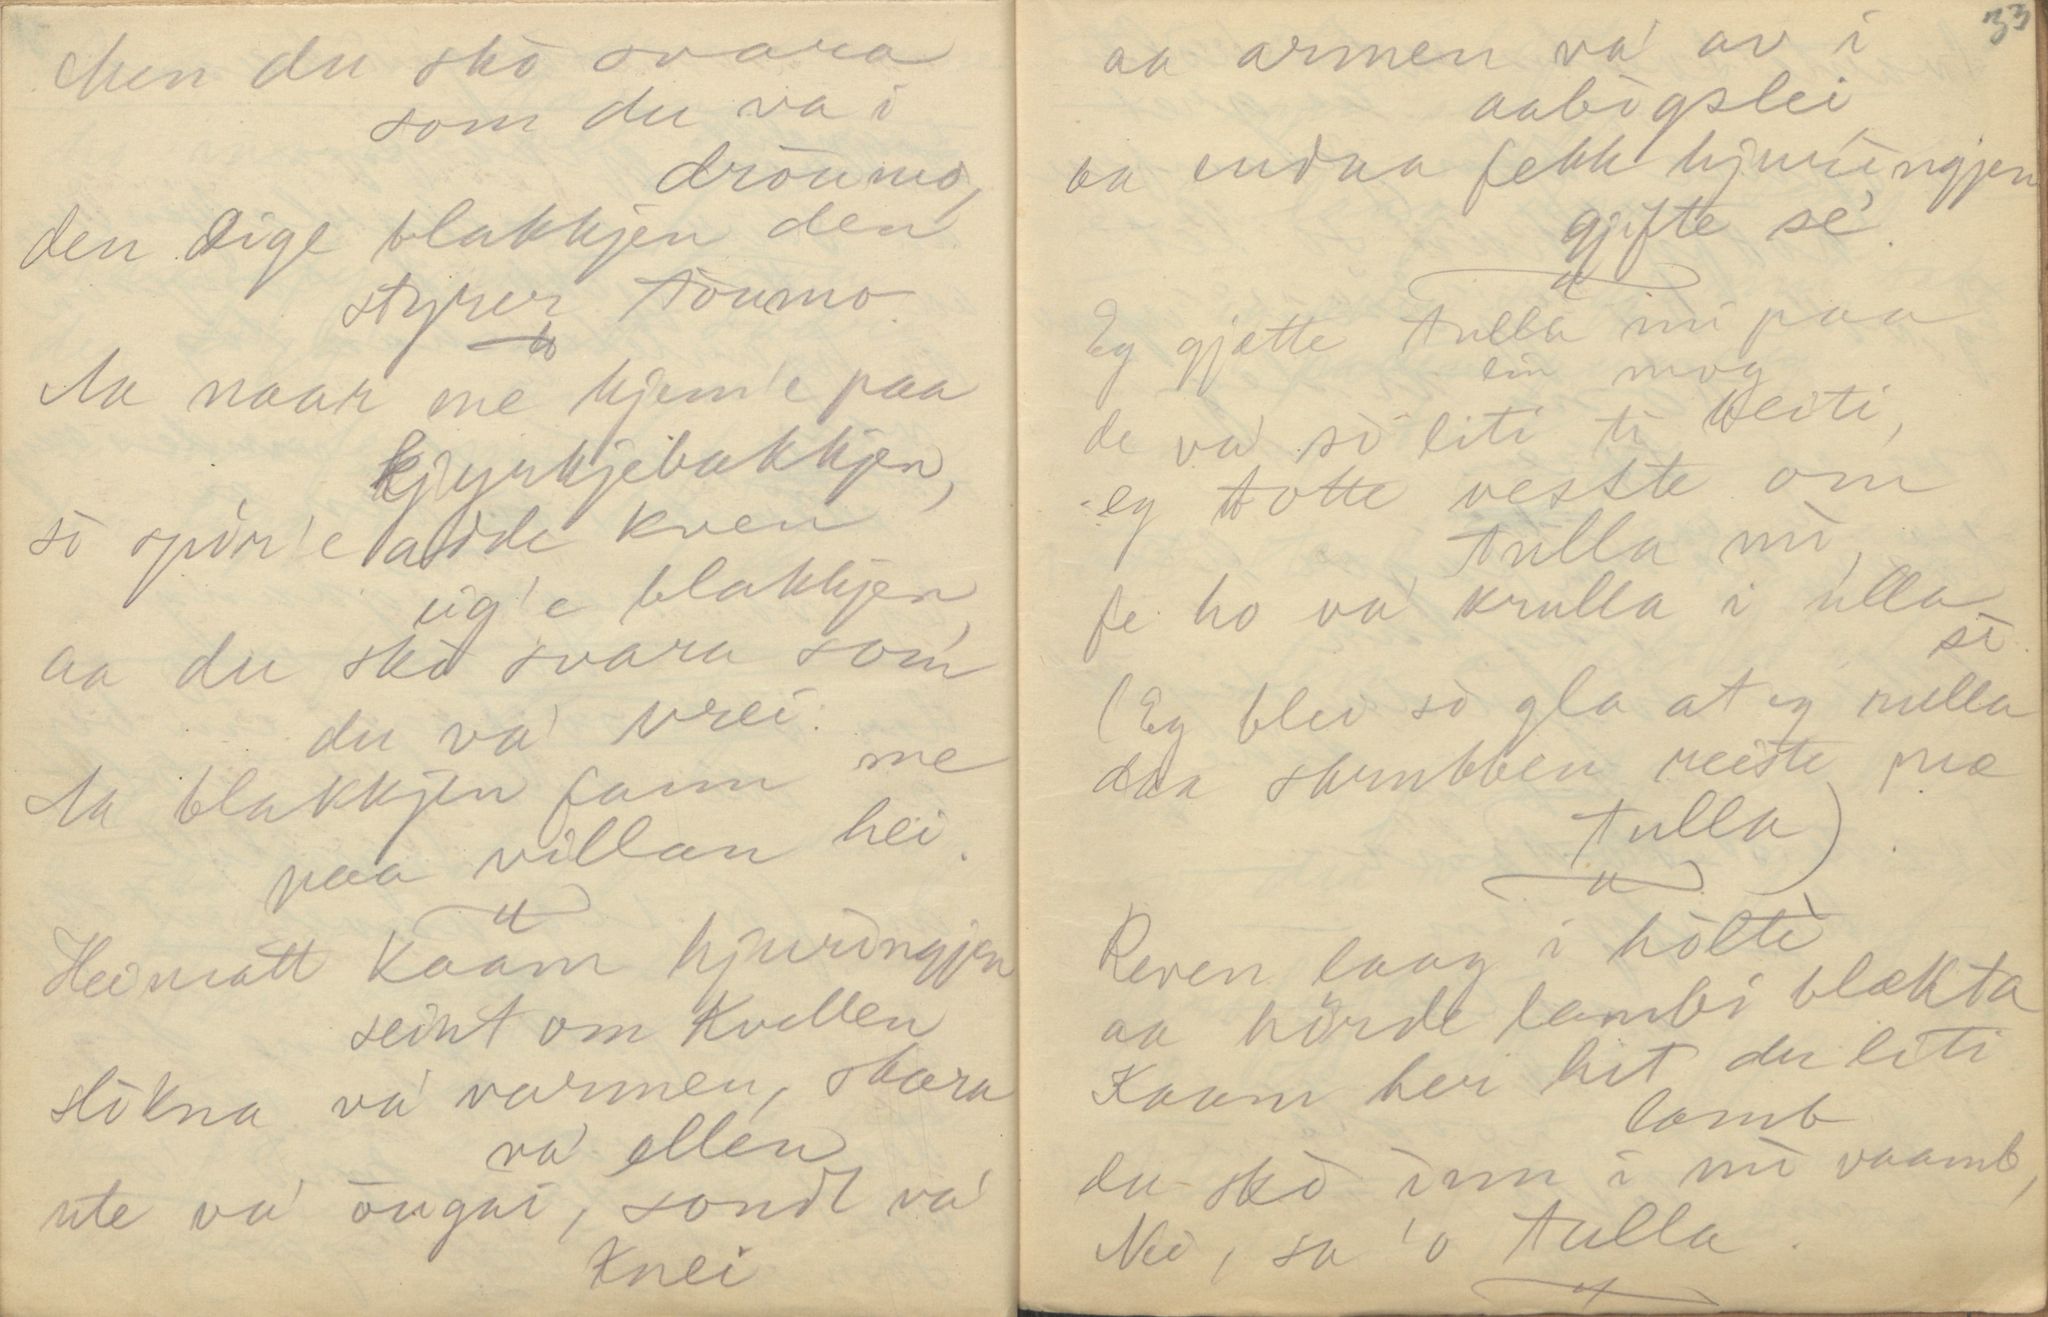 Men du skò svara
som du va i
dròumo,
den eige blakkjen den
styrer tòumo.
Aa naar me kjem'e paa
kjyrkjebakkjen,
sò spòr'e adde kven
eig'e blakkjen,
aa du skò svara som
du va' vrei.
Aa blakkjen fann me
paa villan hei.
Heimatt Kaam hjuringjen
seint om Kvellen
slòkna va' varmen, skara
va' ellen
ute va' òugai, sondt va'
Knei
33
aa armen va' av i
aabògslei
aa endaa fekk hjuringjen
gjifte se'.
Eg gjætte tulla mi paa
ein mog
de va' sò liti ti beiti,
eg totte vesste om
tulla mi,
fe ho va' krulla i ulla
si.
(Eg blei sò gla at eg rulla
daa skrubben reiste mæ
tulla).
Reven laag i hòlti
aa hòrde lambi blækta
Kaam her hit du liti
lamb
du skò inn i mi vaamb,
Nei, sa 'o tulla.